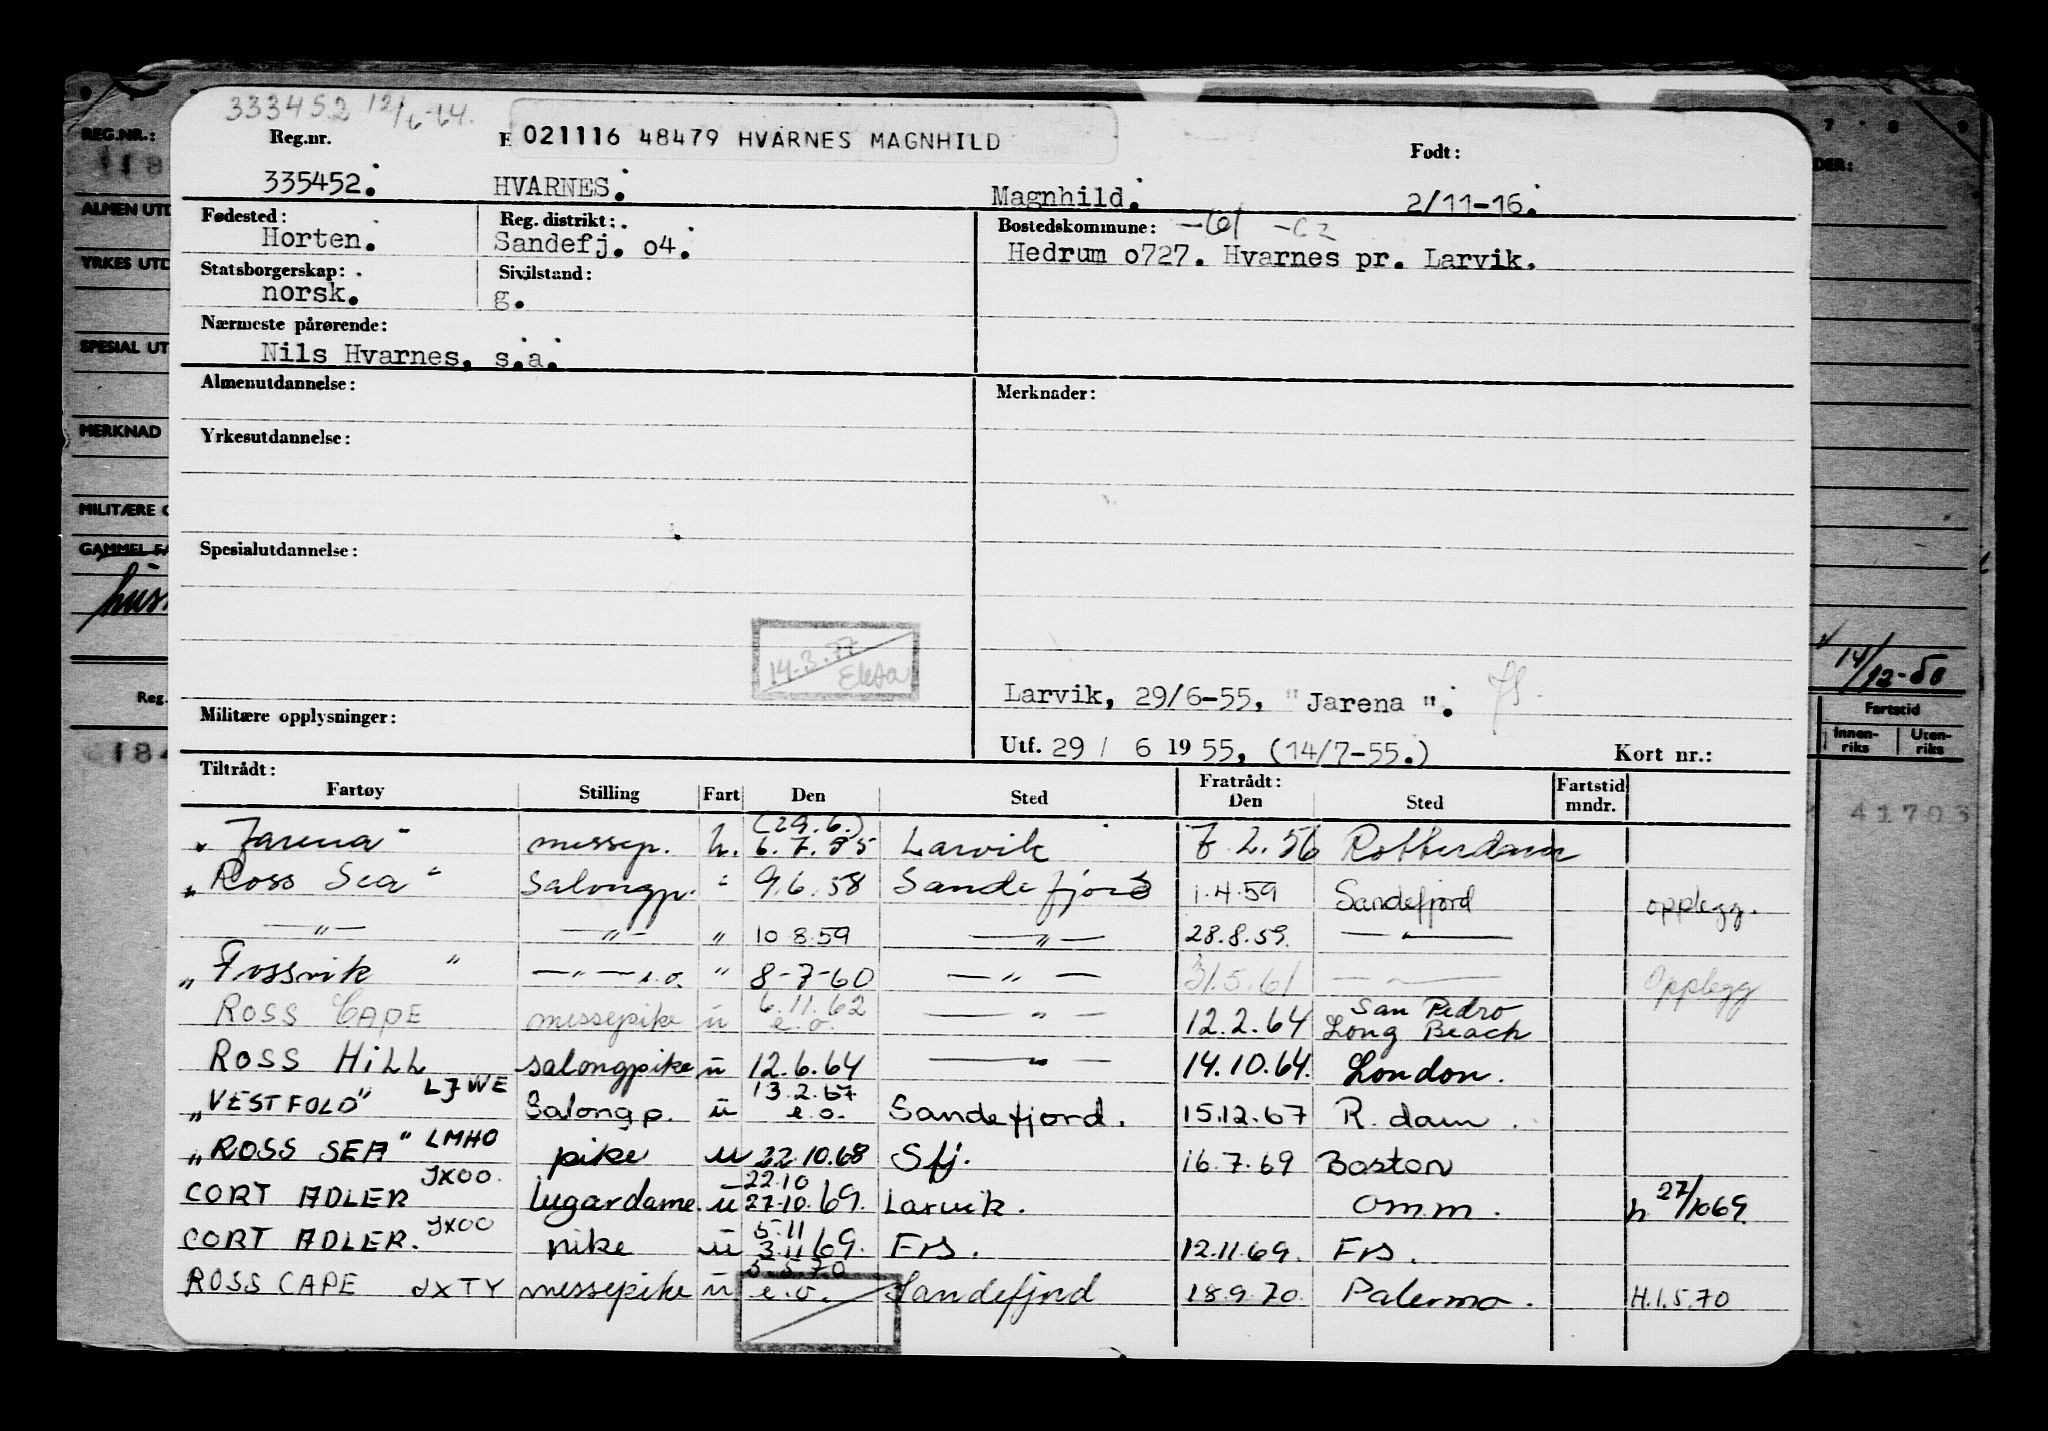 333452 12/6-64.
Reg.nr.
021116 48479 HVARNES MAGNHILD
Født:
335452. HVARNES. Magnhild. 2/11-16.
Fødested: Reg. distrikt: Bostedskommune: -61 -62
Horten. Sandefj. o4. Hedrum o727. Hvarnes pr. Larvik.
Statsborgerskap: Sivilstand:
norsk. g.
Nærmeste pårørende:
Nils Hvarnes, s.a.
Almenutdannelse: Merknader:
Yrkesutdannelse:
Spesialutdannelse:
14.3.77
Larvik, 29/6-55, "Jarena".
Militære opplysninger:
Utf. 29/ 6 1955, (14/7-55.) Kort nr.:
Tiltrådt: Fratrådt:
Fartøy Stilling Fart Den Sted Den Sted Fartstid mndr.
(29.6.)
"Jarena" messep. h. 6.7.55 Larvik 7.2.56 Rotterdam
"Ross Sea" Salongp. " 9.6.58 Sandefjord 1.4.59 Sandefjord opplegg.
—"— —"— " 10 8.59 —"— 28.8.59. —"—
"Fossvik" —"— e.o. " 8-7-60 —"— 31.5.61 —"— Opplegg
ROSS CAPE messepike u 6.11.62 e.o. —"— 12.2.64 San Pedro Long Beach
ROSS HILL salongpike u 12.6.64 —"— 14.10.64. London.
"VESTFOLD" LJWE Salongp. u 13.2.67 e.o. Sandefjord. 15.12.67 R.dam.
"ROSS SEA" LMHO pike u 22.10.68 Sfj. 16.7.69 Boston
22.10
CORT ADLER JXOO. lugardame. u 27.10.69. Larvik. omm. h 27/10 69.
5.11
CORT ADLER. JXOO pike u 3.11.69. Frs. 12.11.69. Frs.
5.5.70
ROSS CAPE JXTY messepike u e.o. Sandefjord 18.9.70. Palermo. H.1.5.70
REG.NR.:
118
ALMEN UTD
YRKES UTD
SPESIAL UT
MERKNAD
MILITÆRE O
GAMMEL FA
Reg.
184
7 8 9
DER:
14/12-50
Fartstid
Innen-riks Uten-riks
41703